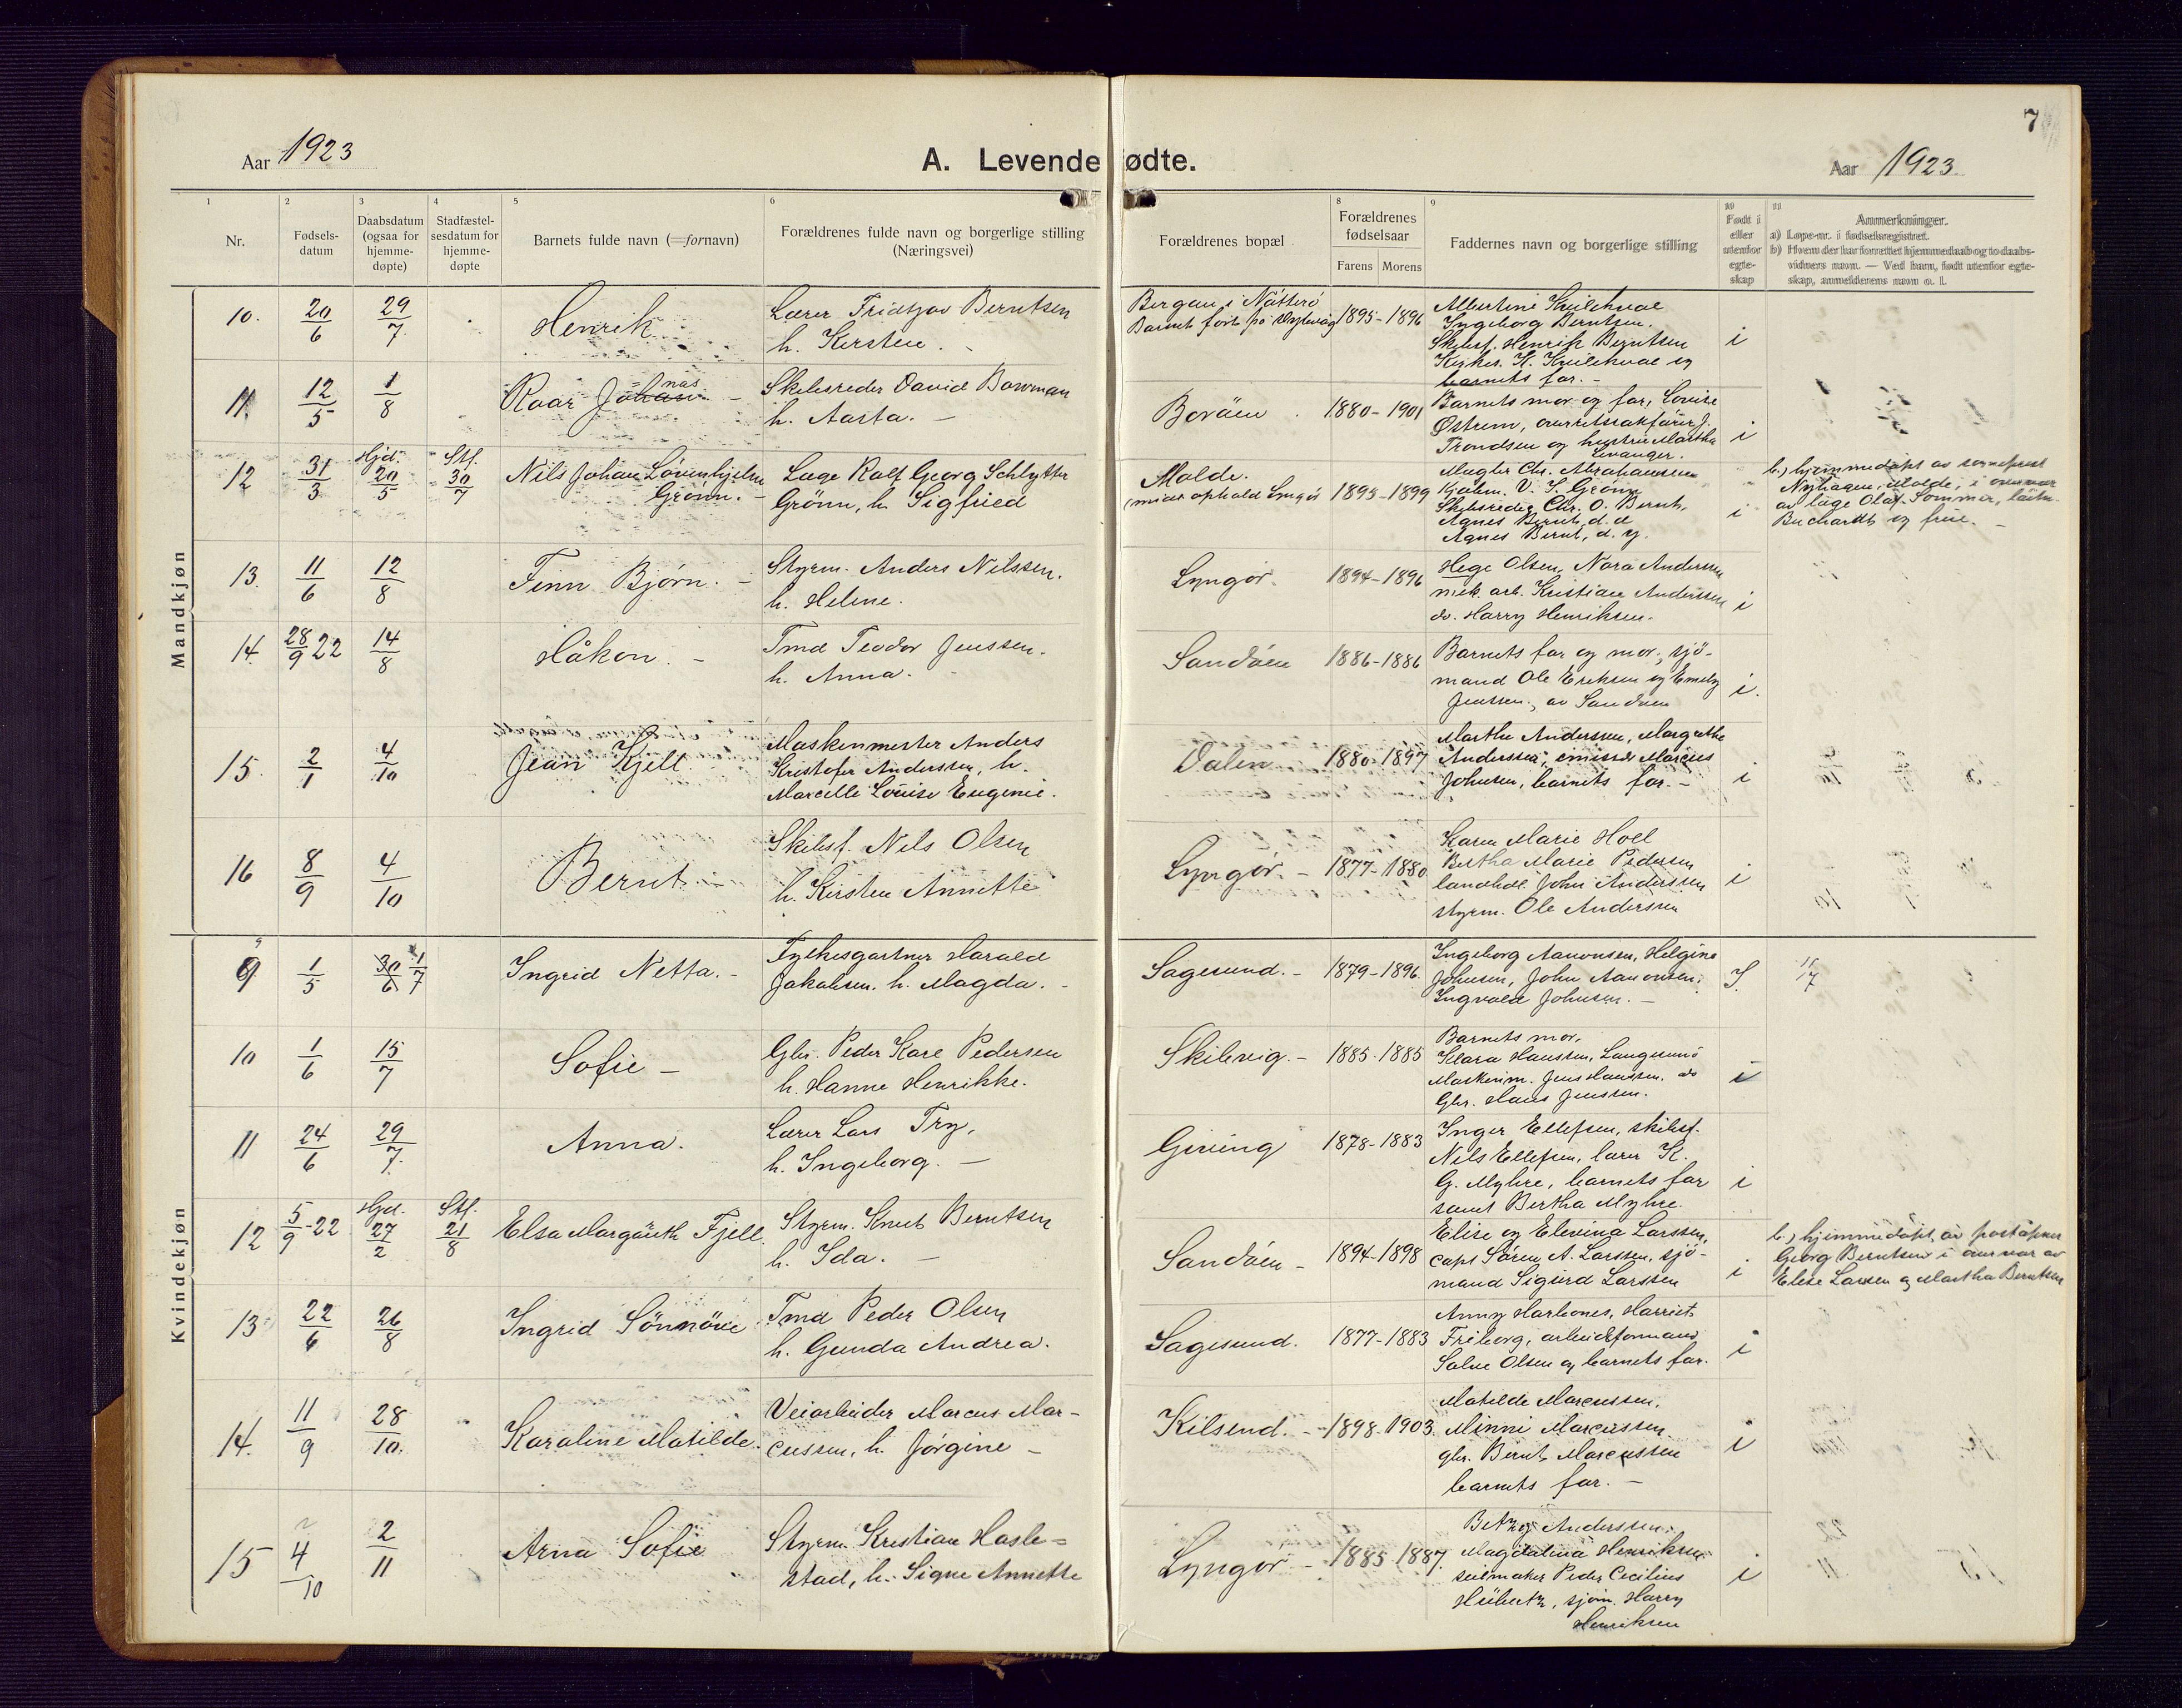 7
Aar 1923
A. Levende fødte.
Aar 1923
1 2 3 4 5 6 8 9 10 11
Nr.
Fødsels-
datum
Daabsdatum
(ogsaa for
hjemme-
døpte)
Stadfæstel-
sesdatum for
hjemme-
døpte
Barnets fulde navn (=fornavn)
Forældrenes fulde navn og borgerlige stilling
(Næringsvei)
Forældrenes bopæl
Forældrenes
fødselsaar
Farens Morens
Faddernes navn og borgerlige stilling
Født i
eller
utenfor
egte-
skap
Anmerkninger.
a) Løpe-nr. i fødselsregistret.
b) Hvem der har forrettet hjemmedaab og to daabs-
vidners navn. — Ved barn, født utenfor egte-
skap, anmelderens navn o. l.
Mandkjøn
10. 20/6 29/7 Henrik
Lærer Fridtjov Berntsen
h. Kirsten
Bergan i Nötterö
Barnet født på
1895-1896
Albertine
Ingeborg Berntsen.
Skibsf. Henrik Berntsen
og
barnets far. -
i
11. 12/5 1/8 Roar Johan nas -
Skibsreder David Bowman
h. Aasta. -
Boröen
1880-1901
Barnets mor og far, Louise
Østrem, overretssakfører J.
Trondsen og hustru Martha
Levanger.
i
12 31/3 Hjd. 20/5 Stf. 30/7 Nils Johan Lövenhjelm
Grönn. -
Læge Ralf Georg Schlytter
Grönn, h. Sigfried
Molde.
(midl. ophold Lyngör
1895-1899
Mægler Chr. Abrahamsen
V. S. Grönn
Skibsreder Chr. O. Bernt,
Agnes Bernt, d. e
Agnes Bernt, d. y.
i
b.) hjemmedöpt av sogneprest
Nyhagen, Molde, i overvær
av læge Olaf Sommer,
Buchardt og frue. -
13. 11/6 12/8 Finn Bjørn. -
Styrm. Anders Nilssen.
h. Helene.
Lyngör
1894-1896
Hege Olsen, Nora Andersen
mek. arb. Kristian Anderssen
do. Harry Henriksen.
i
14. 28/9 22 14/8 Håkon. -
Tmd Teodor Jenssen.
h. Anna.
Sandöen
1886-1886
Barnets far og mor, sjö-
mand Ole Eriksen og Emely
Jenssen, av Sandöen
i.
15. 2/1 4/10 Jean Kjell
Maskinmester Anders
Kristofer Anderssen, h.
Marcelle Louise Eugenie.
Dalen
1880-1897
Marthe Anderssen, Margrethe
Anderssen, emissær Marcus
Johnsen, barnets far. -
i
16 8/9 4/10 Bernt. -
Skibsf. Nils Olsen
h. Kirsten Annette
Lyngör. -
1877-1880
Karen Marie Hoel
Bertha Marie Pedersen
landhdl. John Anderssen
styrm. Ole Anderssen
i
Kvindekjøn
9 1/5 30/6 1/7 Ingrid Netta. -
Fylkesgartner Harald
Jakobsen. h. Magda. -
Sagesund. -
1879-1896
Ingeborg Aanonsen, Helgine
Johnsen, John Aanonsen,
Ingvald Johnsen. -
I.
10 1/6 15/7 Sofie -
Gbr. Peder Kare Pedersen
h. Hanne Henrikke.
Skibvig. -
1885-1885
Barnets mor,
Klara Hanssen, Langesund
Maskinm. Jens Hanssen. do
Gbr. Hans Jenssen.
i
11 24/6 29/7. Anna.
Lærer Lars Try,
h. Ingeborg. -
Giving
1878-1883
Inger Ellefsen, skibsf.
Nils Ellefsen, lærer K.
G. Myhre, barnets far
samt Bertha Myhre.
i
12 5/9-22 Hjd. 27/2 Stf. 21/8 Elsa Margareth Fjell.
Styrm. Knut Berntsen
h. Ida. -
Sandöen -
1894-1898
Elise og Elevina Larssen,
capt Sören A. Larssen, sjö-
mand Sigurd Larssen
i
b.) hjemmedöpt av poståpner
Georg Berntsen i overvær av
Elise Larsen og Martha Berntsen
13 22/6 26/8 Ingrid Sönnöve
Tmd Peder Olsen
h. Gunda Andrea.
Sagesund.
1877-1883
Anny Harbones, Harriet
Friborg, arbeidsformand
Salve Olsen og barnets far.
i
14. 11/9 28/10. Karaline Matilde.
Veiarbeider Marcus Mar-
cussen, h. Jörgine -
Kilsund. -
1898-1903.
Matilde Marcussen,
Minni Marcussen
gbr. Bernt Marcussen
barnets far. -
i
15 4/10 2/11 Arna Sofie
Styrm. Kristian Hasle-
stad, h. Signe Annette
Lyngör -
1885-1887.
Betzy Anderssen,
Magdalena Henriksen
seilmaker Peder Cecilius
Hübertz, sjöm. Harry
Henriksen
i